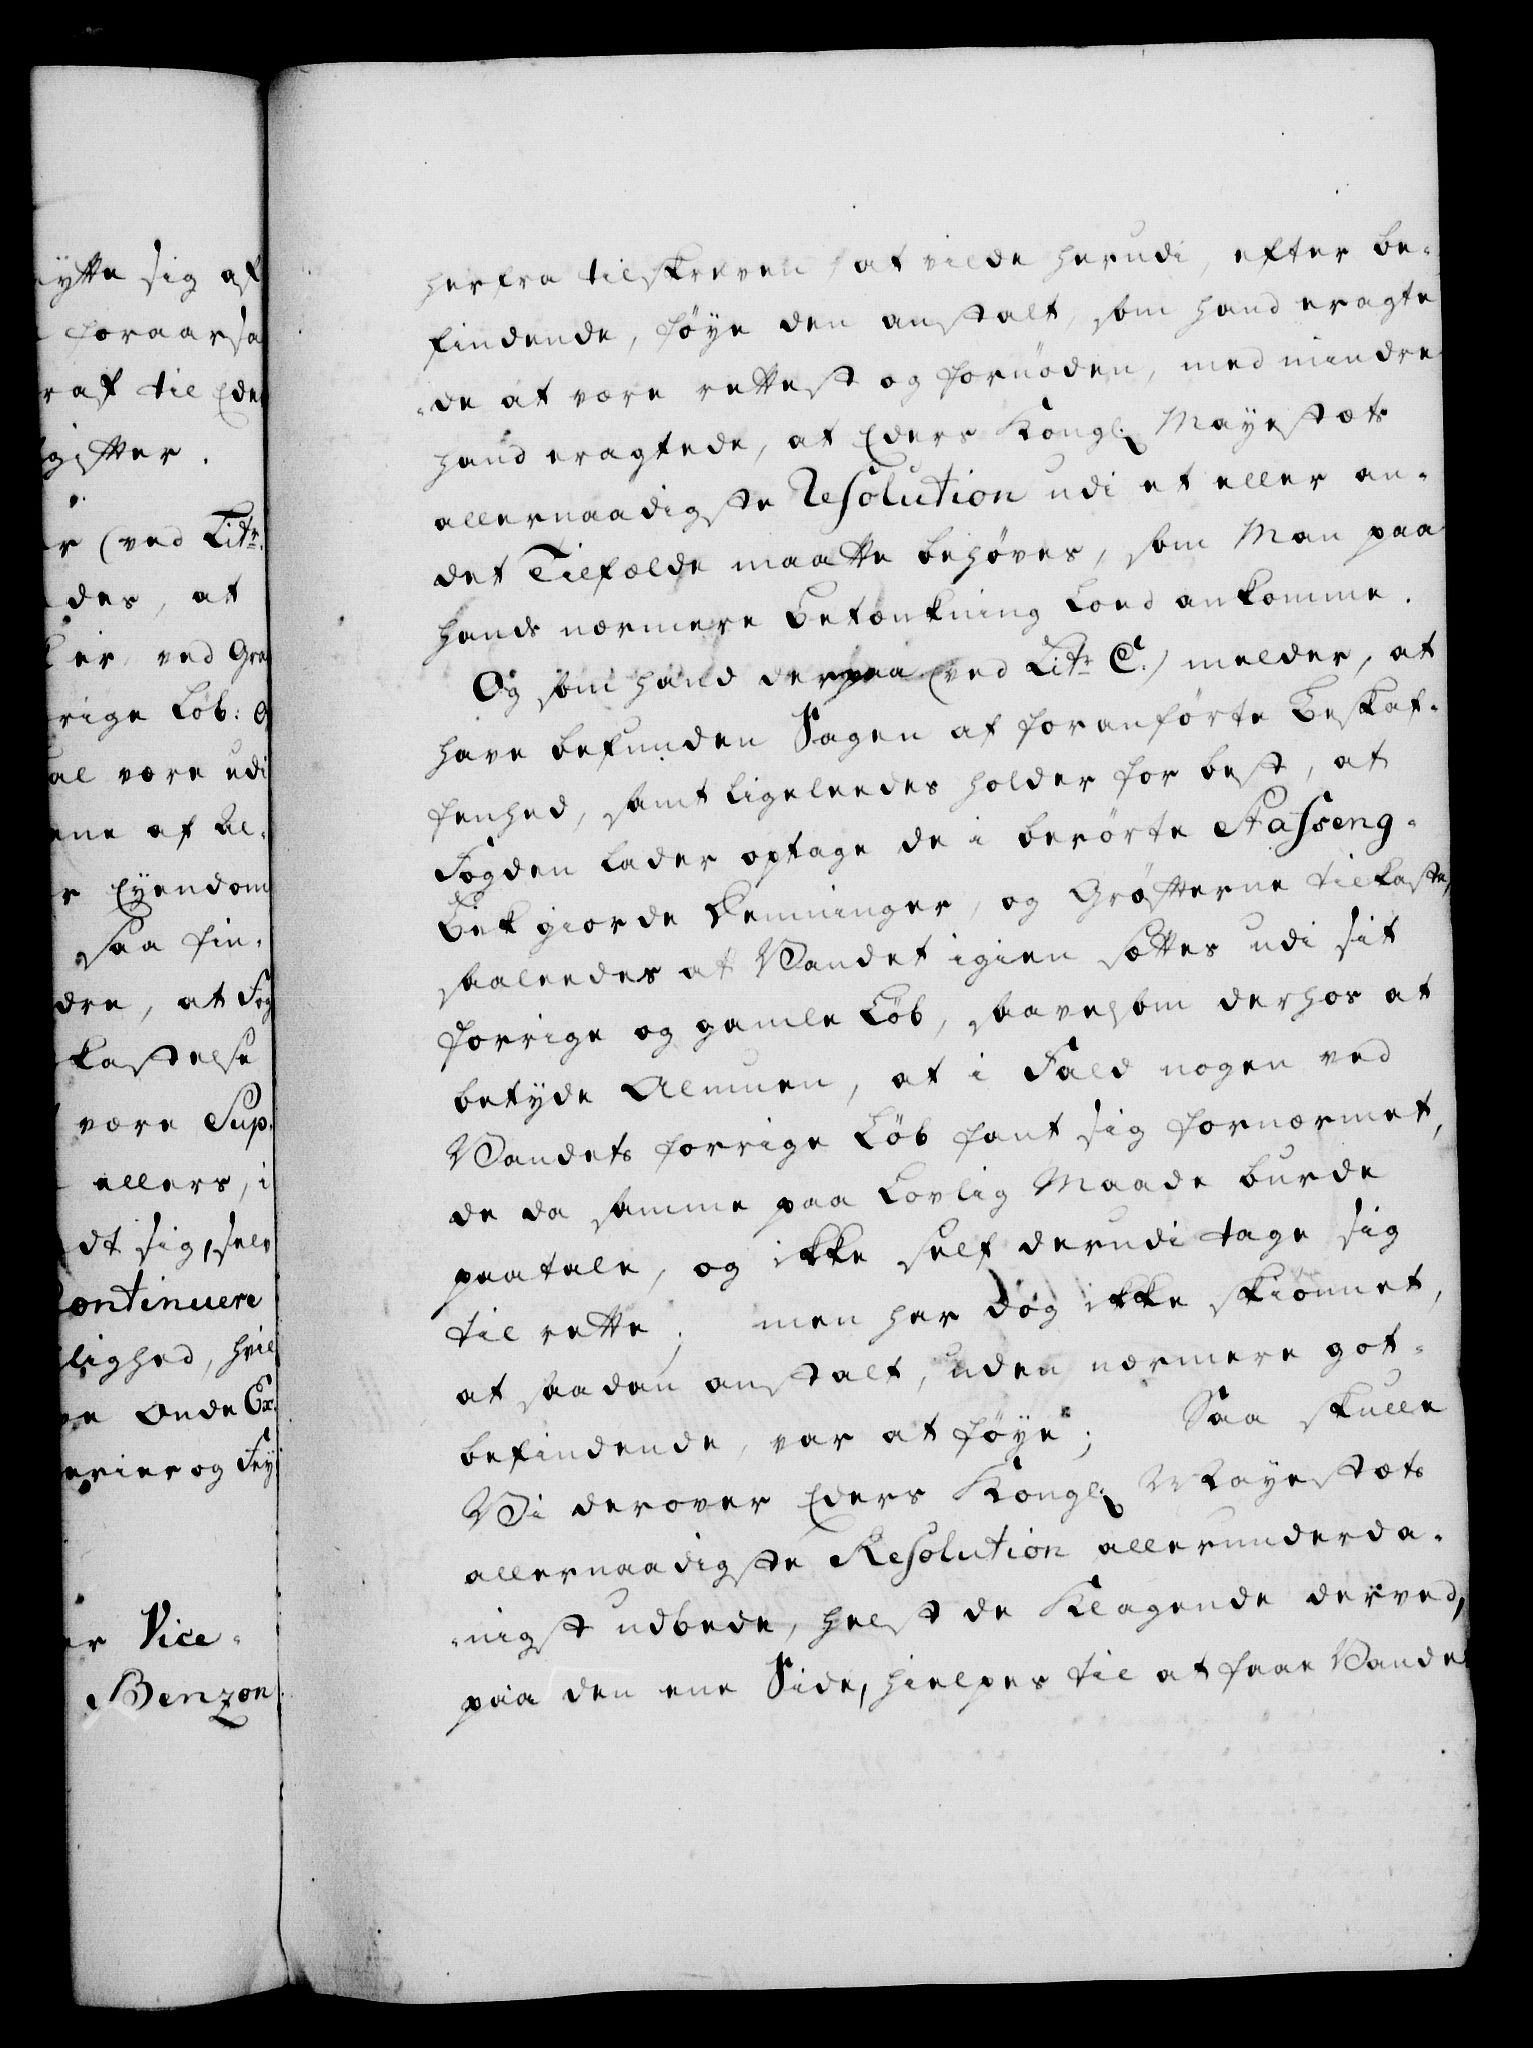 ytte sig af
foraarsa
raf til Eder
gifter.
r (ved Litr.
des, at
er, ved Gra
rige Løb: O
al være udi
ene af Al-
r Eyendom
saa fin-
dre, at Fog
kastelse
være Sup.
ellers, i
dt sig, selv
Continuere
lighed, hvil
onde Ex.
erier og Fey
er Vice-
Benzon
herfra tilskreven, at vilde herudi, efter be-
findende, føye den anstalt, som hand eragte
-de at være rettest og fornøden, med mindre
hand eragtede, at Eders Kongl. Mayestæts
allernaadigste Resolution udi et eller an-
det Tilfælde maatte behøves, som Man paa
hands nærmere Betænkning Loed ankomme.
Og som hand derpaa (ved Litr C.) melder, at
have befunden Sagen af foranførte Beskaf-
fenhed, samt ligeleedes holder for best, at
Fogden lader optage de i berørte Stasseng-
Bek giorde Demninger, og Grøfterne tilkaste,
saaleedes at Vandet igien sættes udi sit
forrige og gamle Løb, saavelsom derhos at
betyde Almuen, at i Fald nogen ved
Vandets forrige Løb fant sig fornærmet,
de da samme paa Lovlig Maade burde
paatale, og ikke self derudi tage sig
til rette; men har dog ikke skiønnet,
at saadan anstalt, uden nærmere got-
befindende, var at føye; Saa skulle
Vi derover Eders Kongl. Mayestæts
allernaadigste Resolution allerunderda-
-nigst udbede, helst de Klagende derved,
paa den ene Side, hielpes til at faae Vande